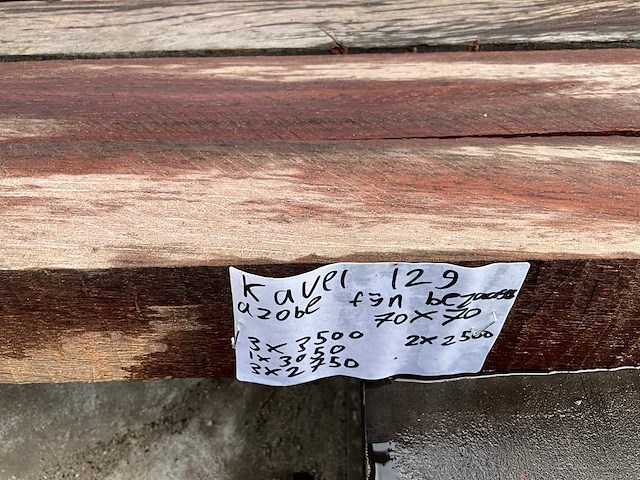 Kavel 129
azobe fijn bezaagd
70 x 70
3 x 3500 2 x 2500
1 x 3050
3 x 2750